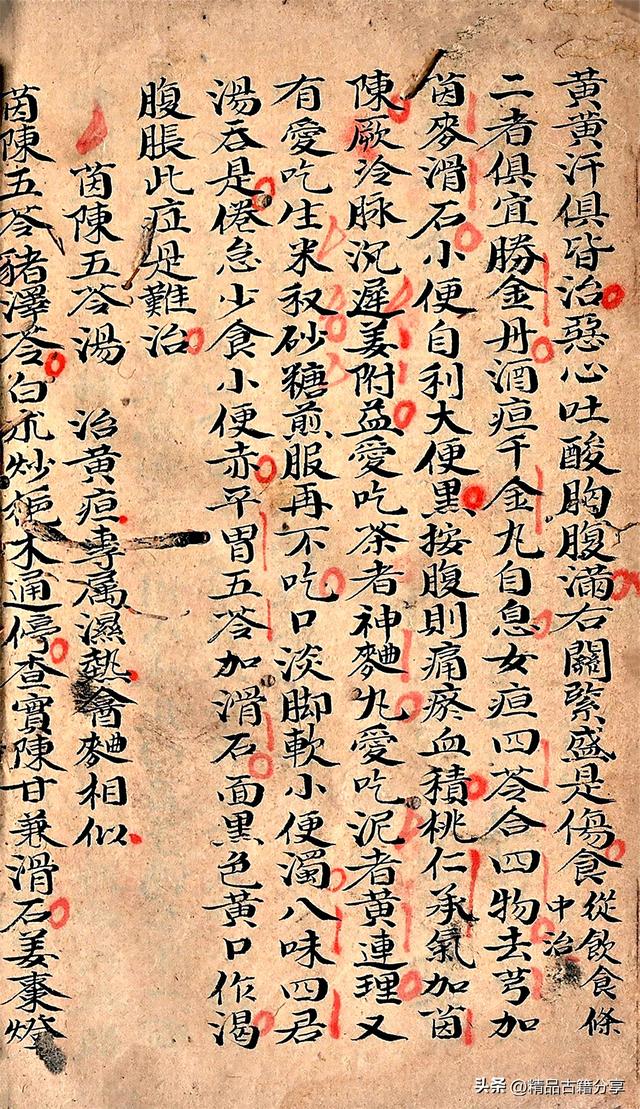 黄黄汗俱皆治惡心吐酸胸腹滿右關緊盛是傷食從飲食條中治
二者俱宜勝金丹酒疸千金九自息女疸四苓合四物去芎加
茵麥滑石小便自利大便黑按腹則痛瘀血積桃仁承氣加茵
陳厥冷脉沉遲姜附益愛吃茶者神麯九愛吃泥者黄連理又
有愛吃生米秋砂糖煎服再不吃口淡脚軟小便濁八味四君
湯吞是倦怠少食小便赤平胃五苓加滑石面黑色黄口作渴
腹脹此症是難治
茵陳五苓湯 治黄疸專属濕熱會麯相似
茵陳五苓豬澤苓白朮炒梔木通停查實陳甘兼滑石姜棗燈
头条 @精品古籍分享